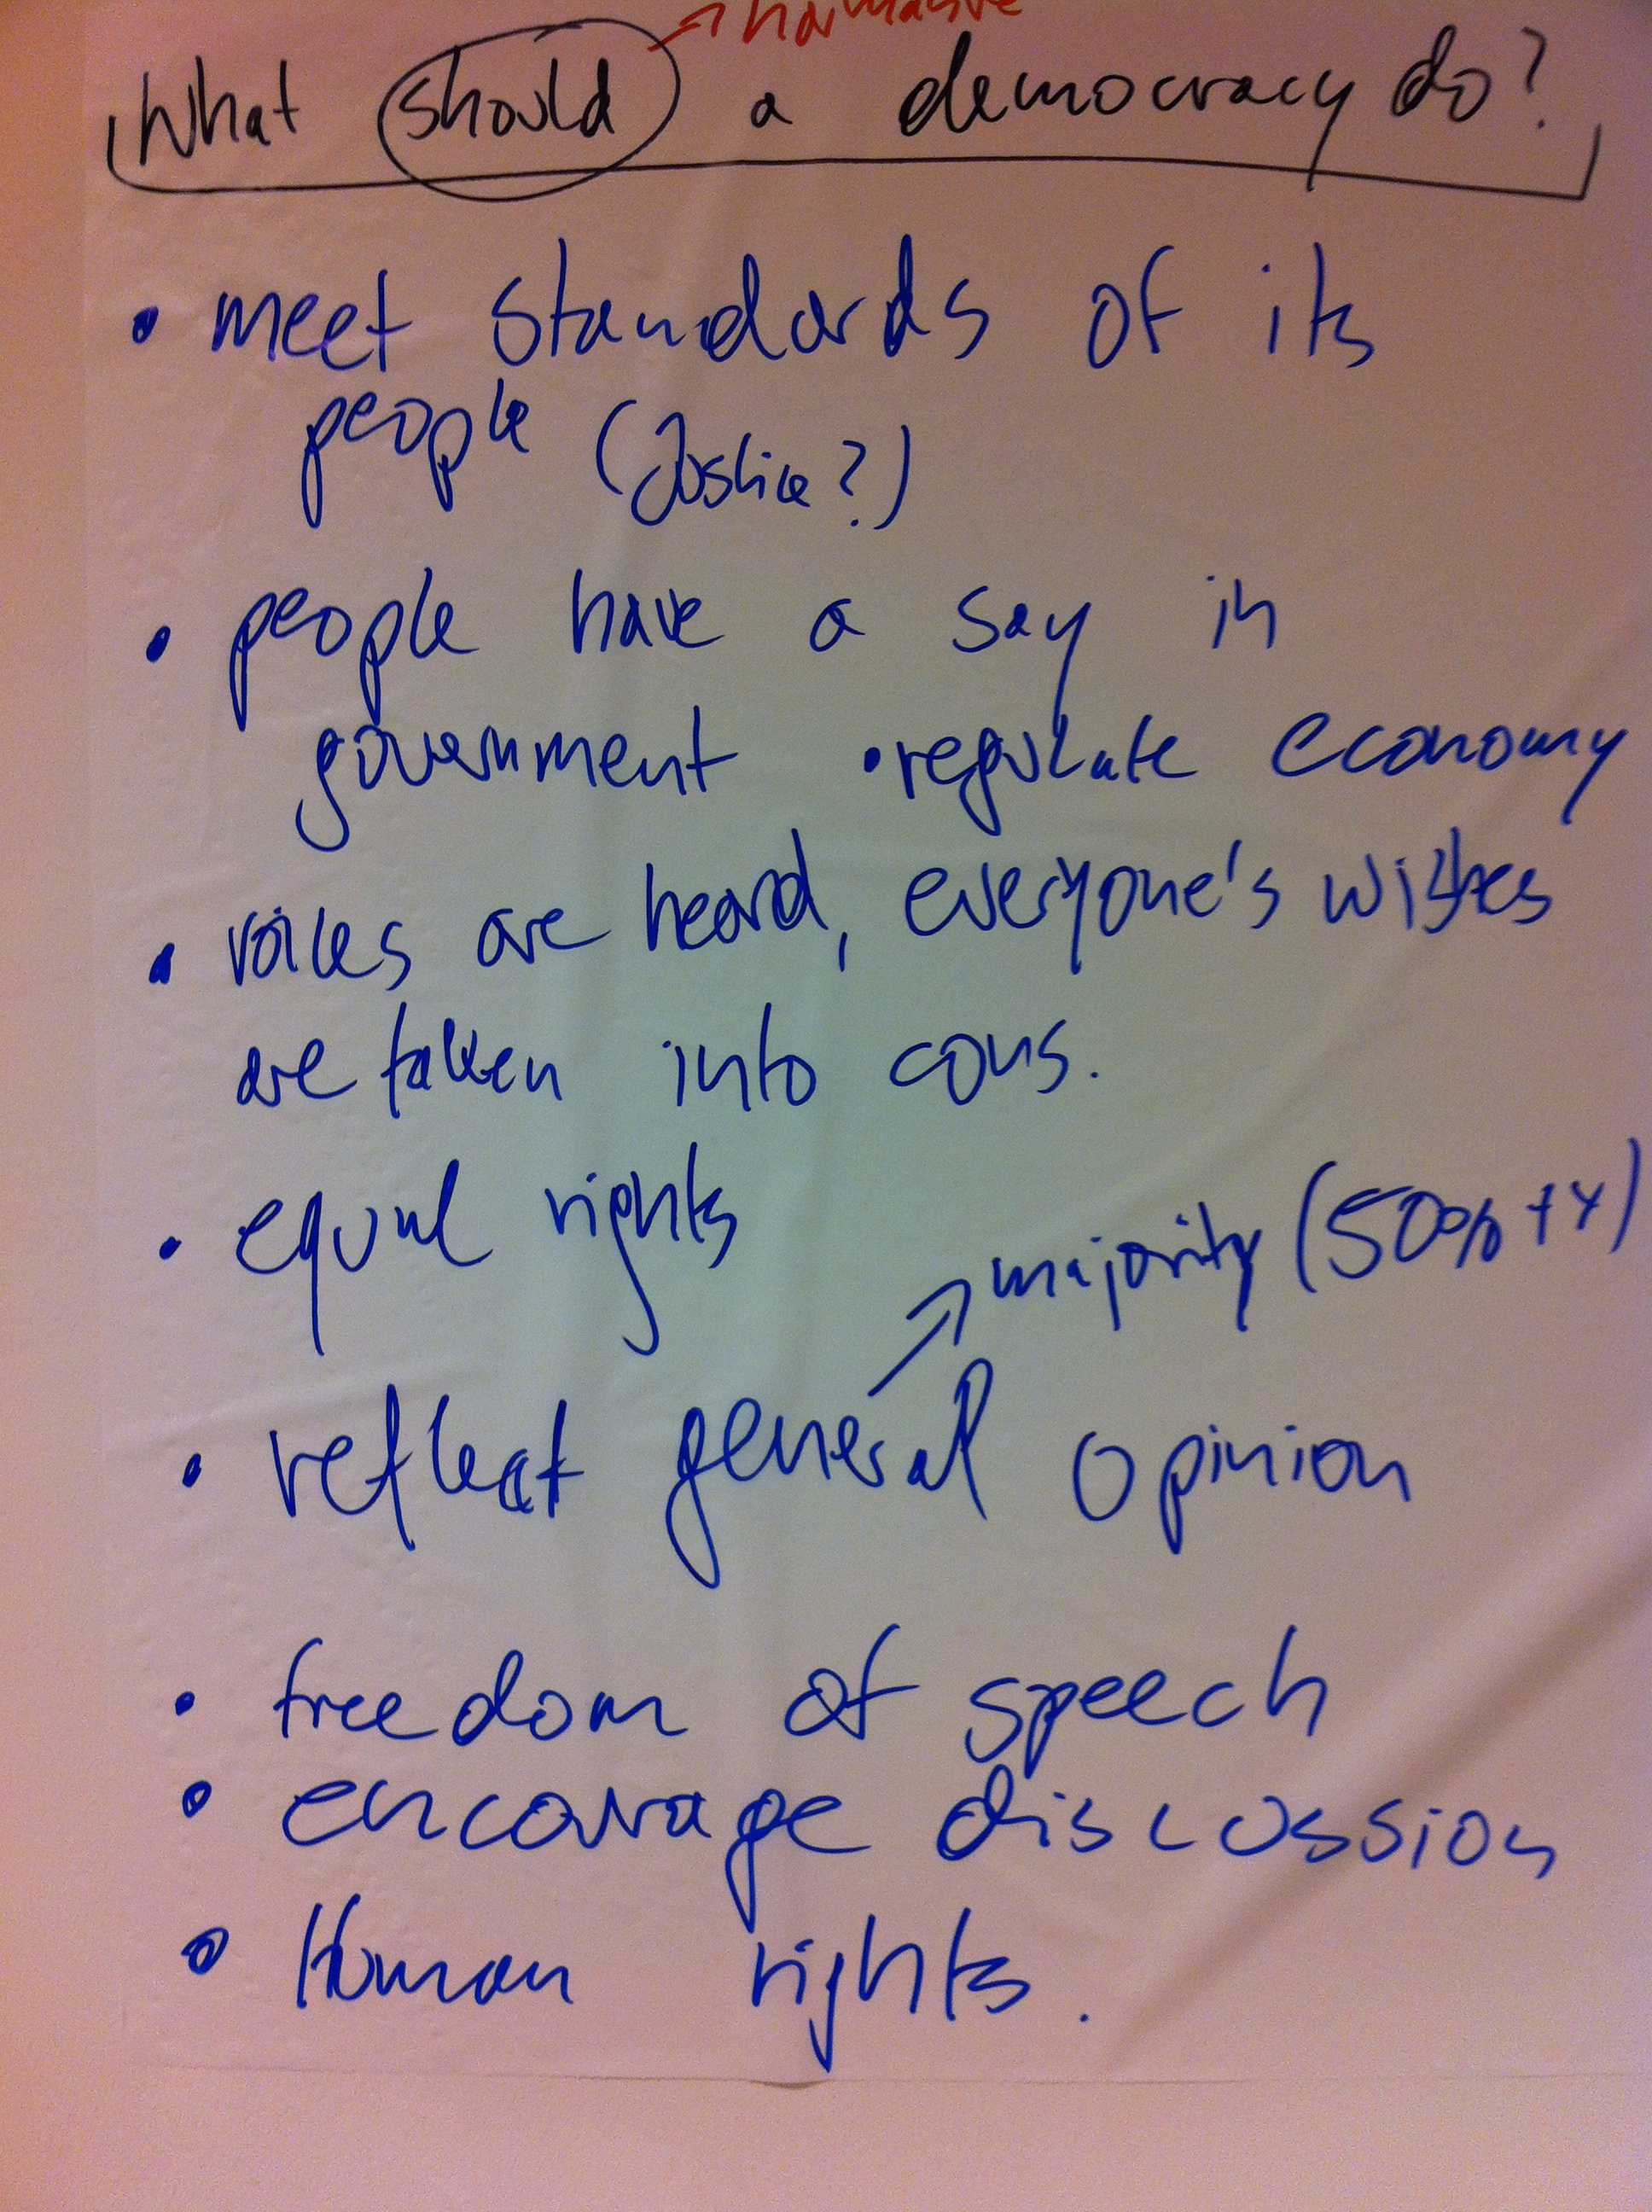 normative
What should a democracy do?
• meet standards of its
people (Justice?)
• people have a say in
government • regulate economy
• voices are heard, everyone's wishes
are taken into cons.
• equal rights
majority (50% +
• reflect general opinion
• freedom of speech
• encourage discussion
• Human rights.